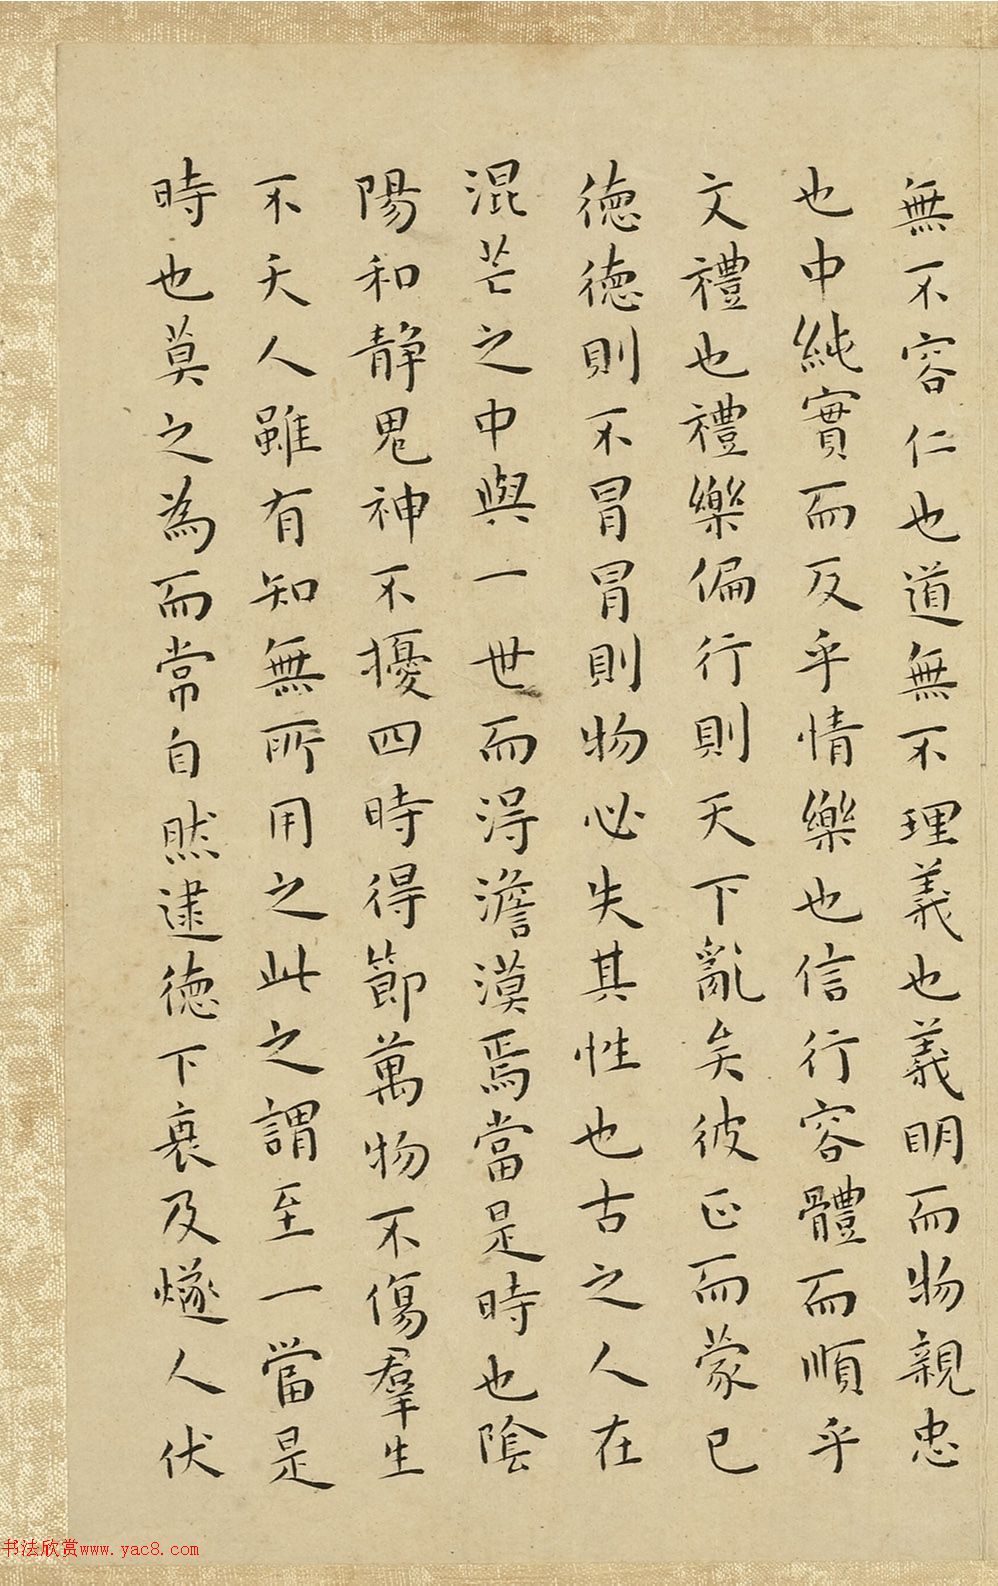 無不容仁也道無不理義也義明而物親忠
也中純實而反乎情樂也信行容體而順乎
文禮也禮樂偏行則天下亂矣彼正而蒙已
德德則不冒冒則物必失其性也古之人在
混芒之中與一世而淂澹漠焉當是時也陰
陽和静鬼神不擾四時得節萬物不傷羣生
不夭人雖有知無所用之此之謂至一當是
時也莫之為而常自然逮德下衰及燧人伏
书法欣赏www.yac8.com